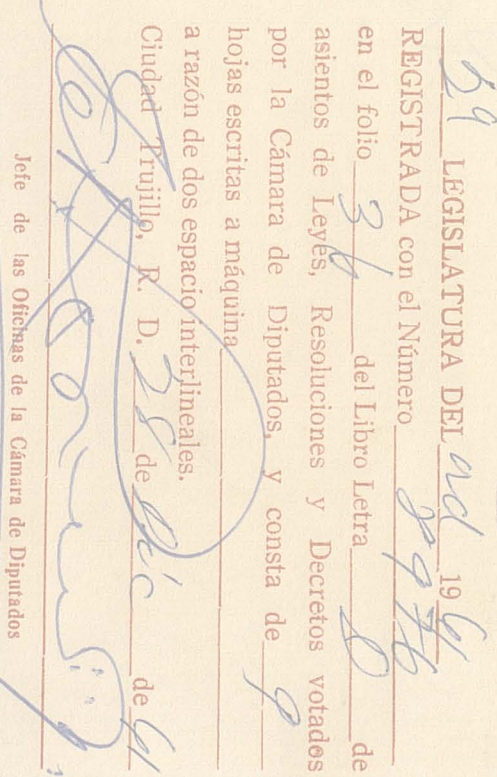 LEGISLATURA DEL 19 61
REGISTRADA con el Número 8976
en el folio 36 del Libro Letra de
asientos de Leyes, Resoluciones y Decretos votados
por la Cámara de Diputados, y consta de 9
hojas escritas a máquina
a razón de dos espacio interlineales.
Ciudad Trujillo, R. D. 28 de Dic de 61
Jefe de las Oficinas de la Cámara de Diputados